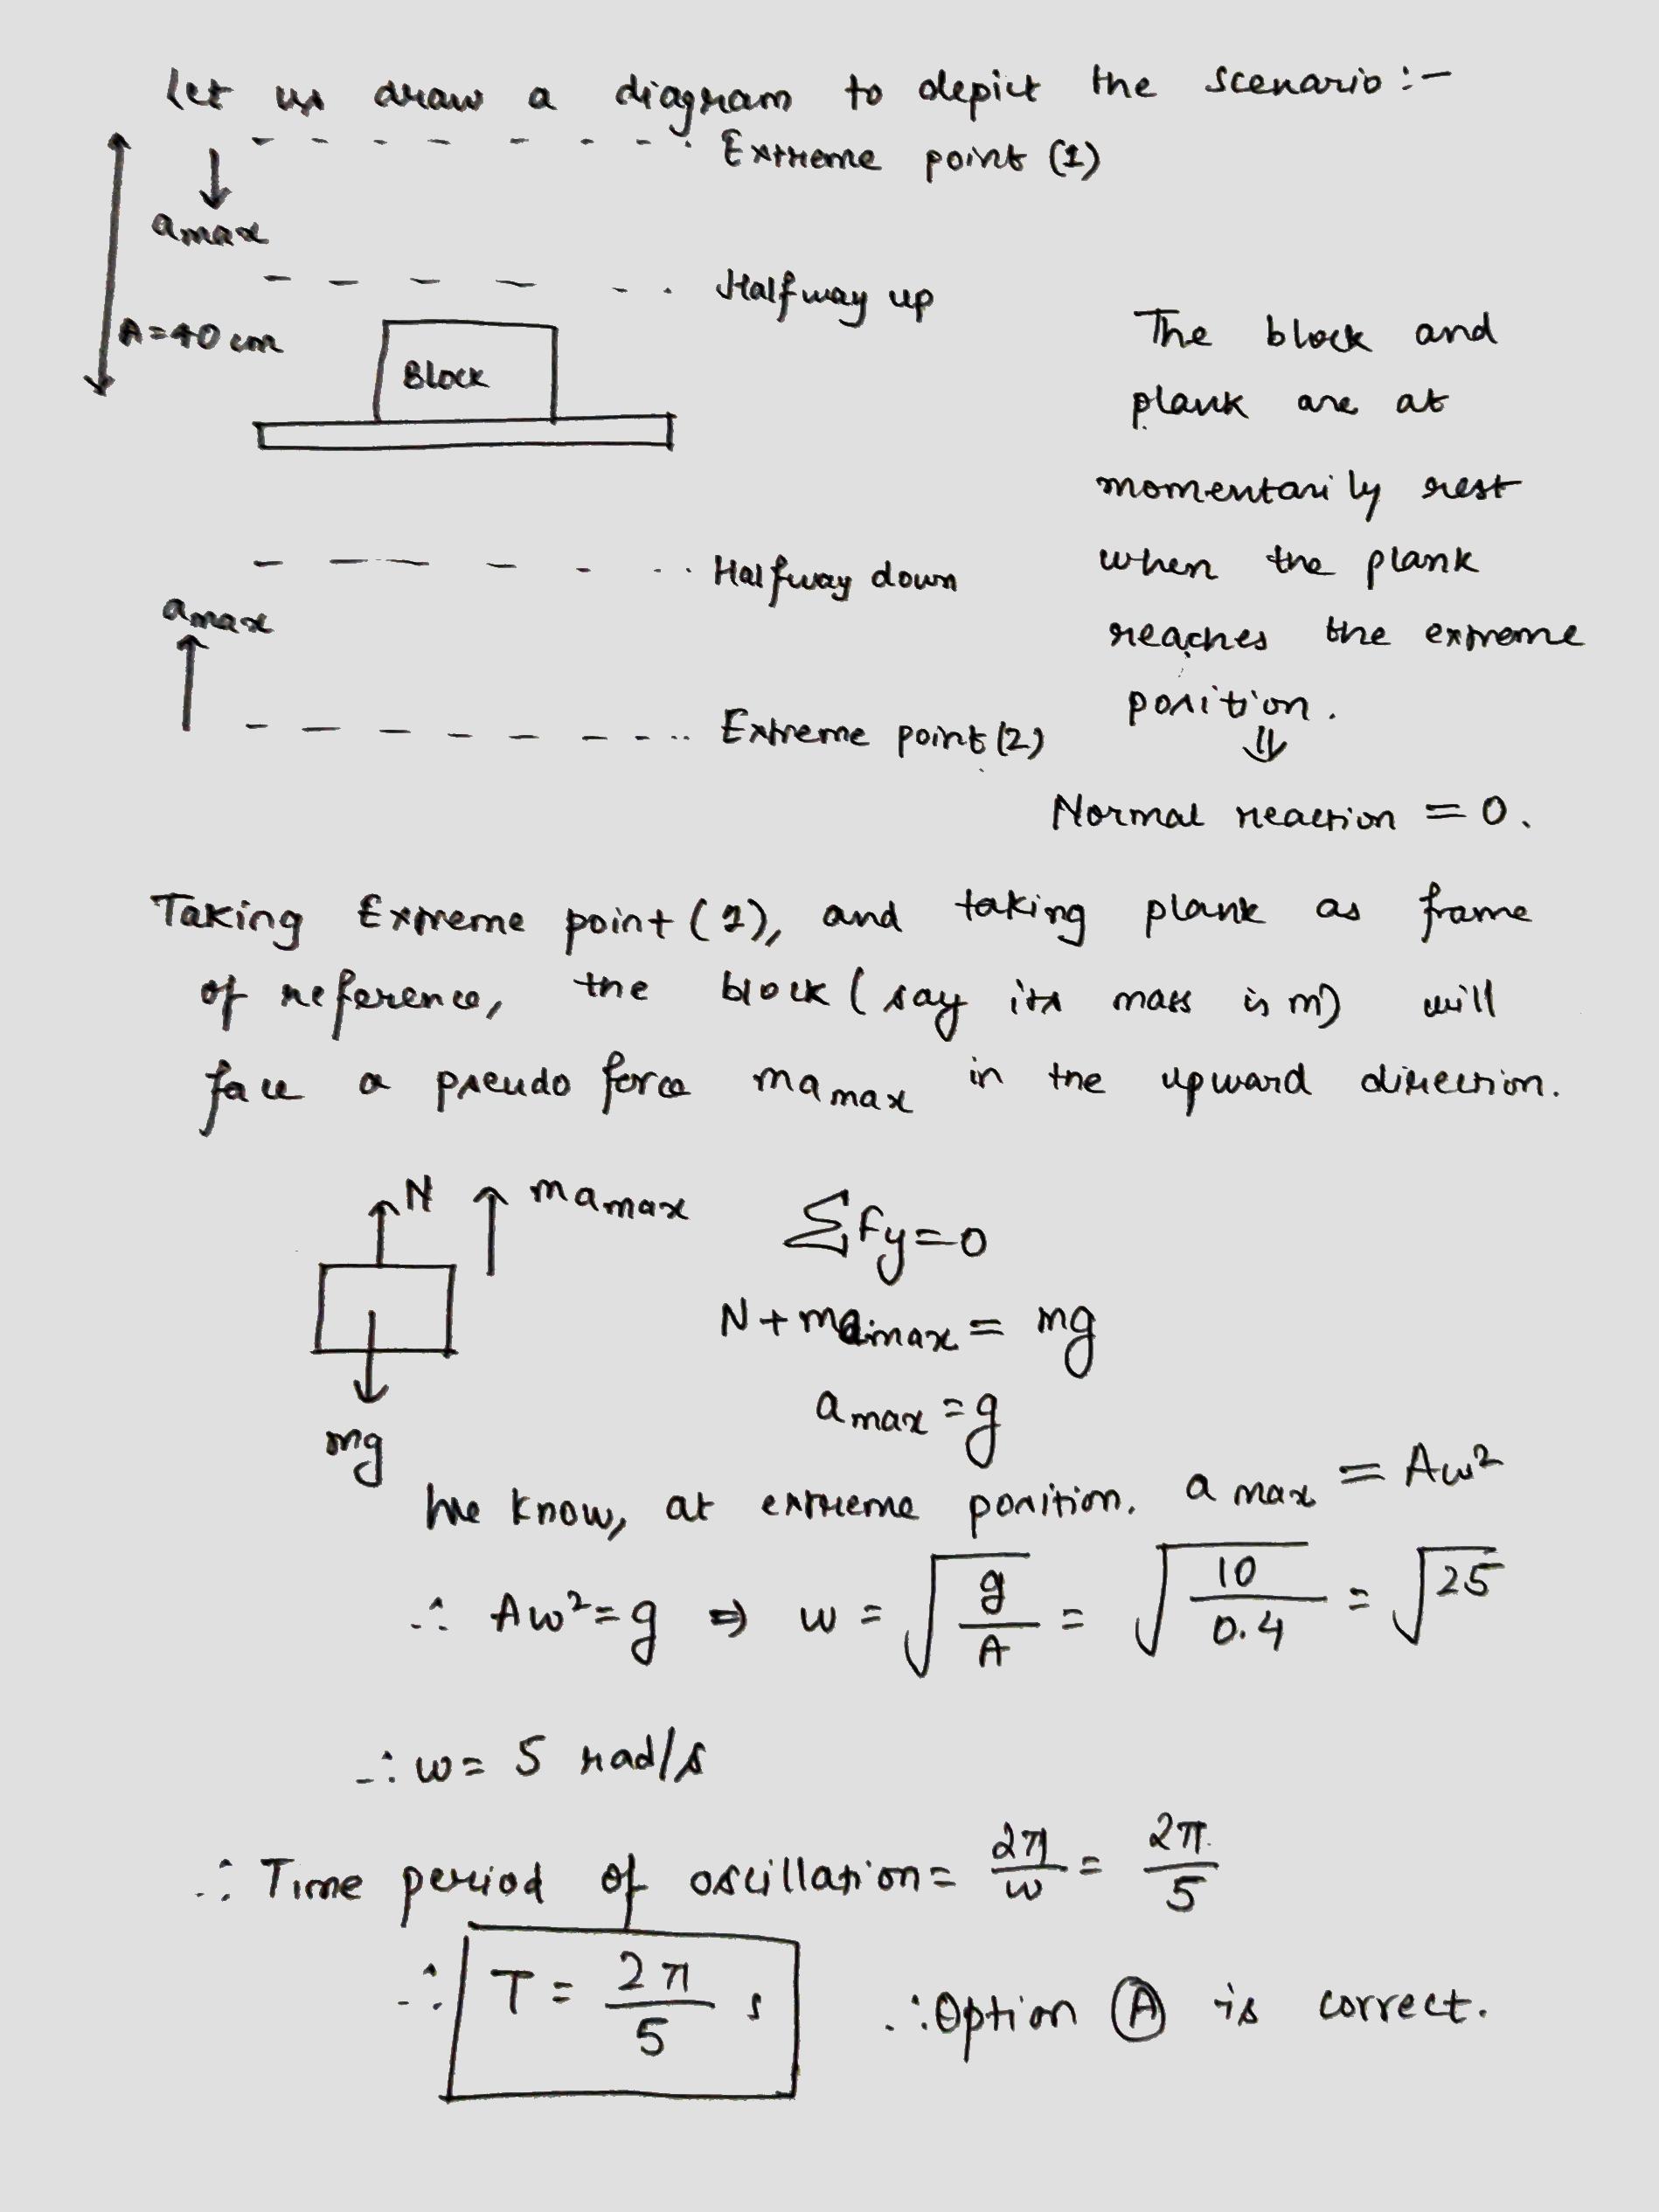 Let us draw a diagram to depict the scenario:-
Extreme point (1)
amax
Halfway up
A=40 cm
Block
The block and
plank are at
momentarily rest
when the plank
reaches the extreme
position.
⇓
Normal reaction = 0.
Halfway down
amax
Extreme point (2)
Taking Extreme point (1), and taking plank as frame
of reference, the block (say its mass is m) will
face a pseudo force mamax in the upward direction.
N
mamax
mg
Σfy=0
N+mamax = mg
amax = g
We know, at extreme position, amax = Aw²
∴ Aw²=g ⇒ w = √(g/A) = √(10/0.4) = √25
∴ w= 5 rad/s
∴ Time period of oscillation= 2π/w = 2π/5
∴ T = 2π/5 s ∴ Option (A) is correct.